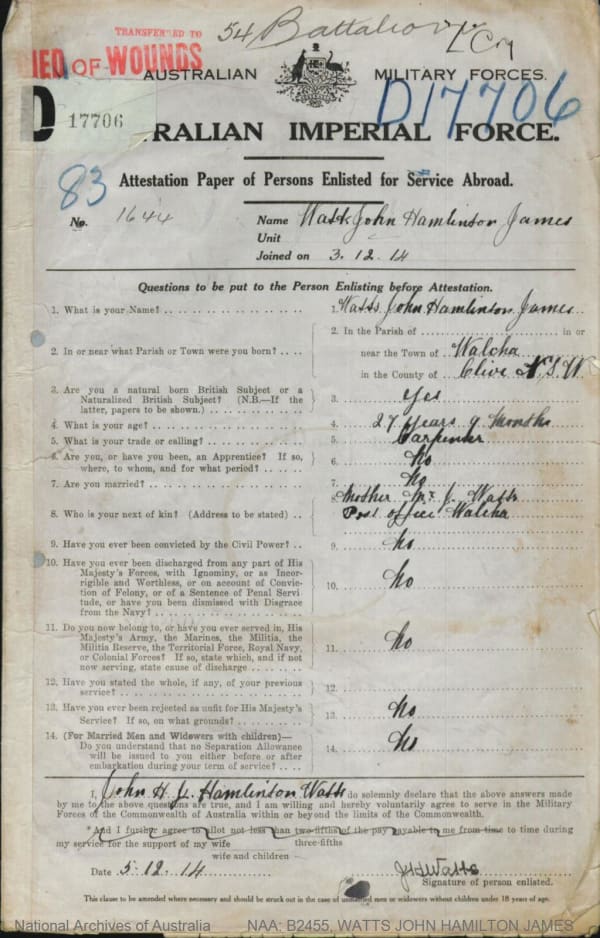 54 Battalion
TRANSFERRED TO
DIED OF WOUNDS
AUSTRALIAN MILITARY FORCES.
D
17706
D17706
TRALIAN IMPERIAL FORCE.
83
Attestation Paper of Persons Enlisted for Service Abroad.
No. 1644 Name Watts John Hamlinson James
Unit
Joined on 3.12.14
Questions to be put to the Person Enlisting before Attestation.
1. What is your Name? 1. Watts John Hamlinson James
2. In or near what Parish or Town were you born? 2. In the Parish of in or
near the Town of Walcha
in the County of Clive N.S.W.
3. Are you a natural born British Subject or a
Naturalized British Subject? (N.B.—If the
latter, papers to be shown.) 3. Yes
4. What is your age? 4. 27 years 9 months
5. What is your trade or calling? 5. Carpenter
6. Are you, or have you been, an Apprentice? If so,
where, to whom, and for what period? 6. No
7. Are you married? 7. No
8. Who is your next of kin? (Address to be stated) 8. Mother J. Watts
Post office Walcha
9. Have you ever been convicted by the Civil Power? 9. No
10. Have you ever been discharged from any part of His
Majesty's Forces, with Ignominy, or as Incor-
rigible and Worthless, or on account of Convic-
tion of Felony, or of a Sentence of Penal Servi
tude, or have you been dismissed with Disgrace
from the Navy? 10. No
11. Do you now belong to, or have you ever served in, His
Majesty's Army, the Marines, the Militia, the
Militia Reserve, the Territorial Force, Royal Navy,
or Colonial Forces? If so, state which, and if not
now serving, state cause of discharge 11. No
12. Have you stated the whole, if any, of your previous
service? 12.
13. Have you ever been rejected as unfit for His Majesty's
Service? If so, on what grounds? 13. No
14. (For Married Men and Widowers with children)—
Do you understand that no Separation Allowance
will be issued to you either before or after
embarkation during your term of service? 14. No
I, John H. J. Hamlinson Watts do solemnly declare that the above answers made
by me to the above questions are true, and I am willing and hereby voluntarily agree to serve in the Military
Forces of the Commonwealth of Australia within or beyond the limits of the Commonwealth.
*And I further agree to allot not less than two-fifths of the pay payable to me from time to time during
my service for the support of my wife three-fifths
wife and children
Date 5.12.14 JHWatts
Signature of person enlisted.
This clause to be amended where necessary and should be struck out in the case of unmarried men or widowers without children under 18 years of age.
National Archives of Australia NAA: B2455, WATTS JOHN HAMILTON JAMES